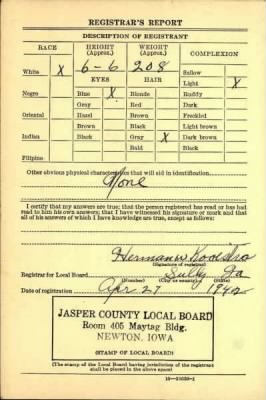 REGISTRAR'S REPORT
DESCRIPTION OF REGISTRANT
RACE HEIGHT (Approx.) WEIGHT (Approx.) COMPLEXION
White X 6-6 208 Sallow
EYES HAIR Light X
Negro Blue X Blonde Ruddy
Gray Red Dark
Oriental Hazel Brown Freckled
Brown Black Light brown
Indian Black Gray X Dark brown
Bald Black
Filipino
Other obvious physical characteristics that will aid in identification
None
I certify that my answers are true; that the person registered has read or has had read to him his own answers; that I have witnessed his signature or mark and that all of his answers of which I have knowledge are true, except as follows:
Herman
(Signature of registrar)
Registrar for Local Board Sully Ia
(Number) (City or county)
Date of registration Apr 27 1942
JASPER COUNTY LOCAL BOARD
Room 405 Maytag Bldg.
NEWTON, IOWA
(STAMP OF LOCAL BOARD)
(The stamp of the Local Board having jurisdiction of the registrant shall be placed in the above space)